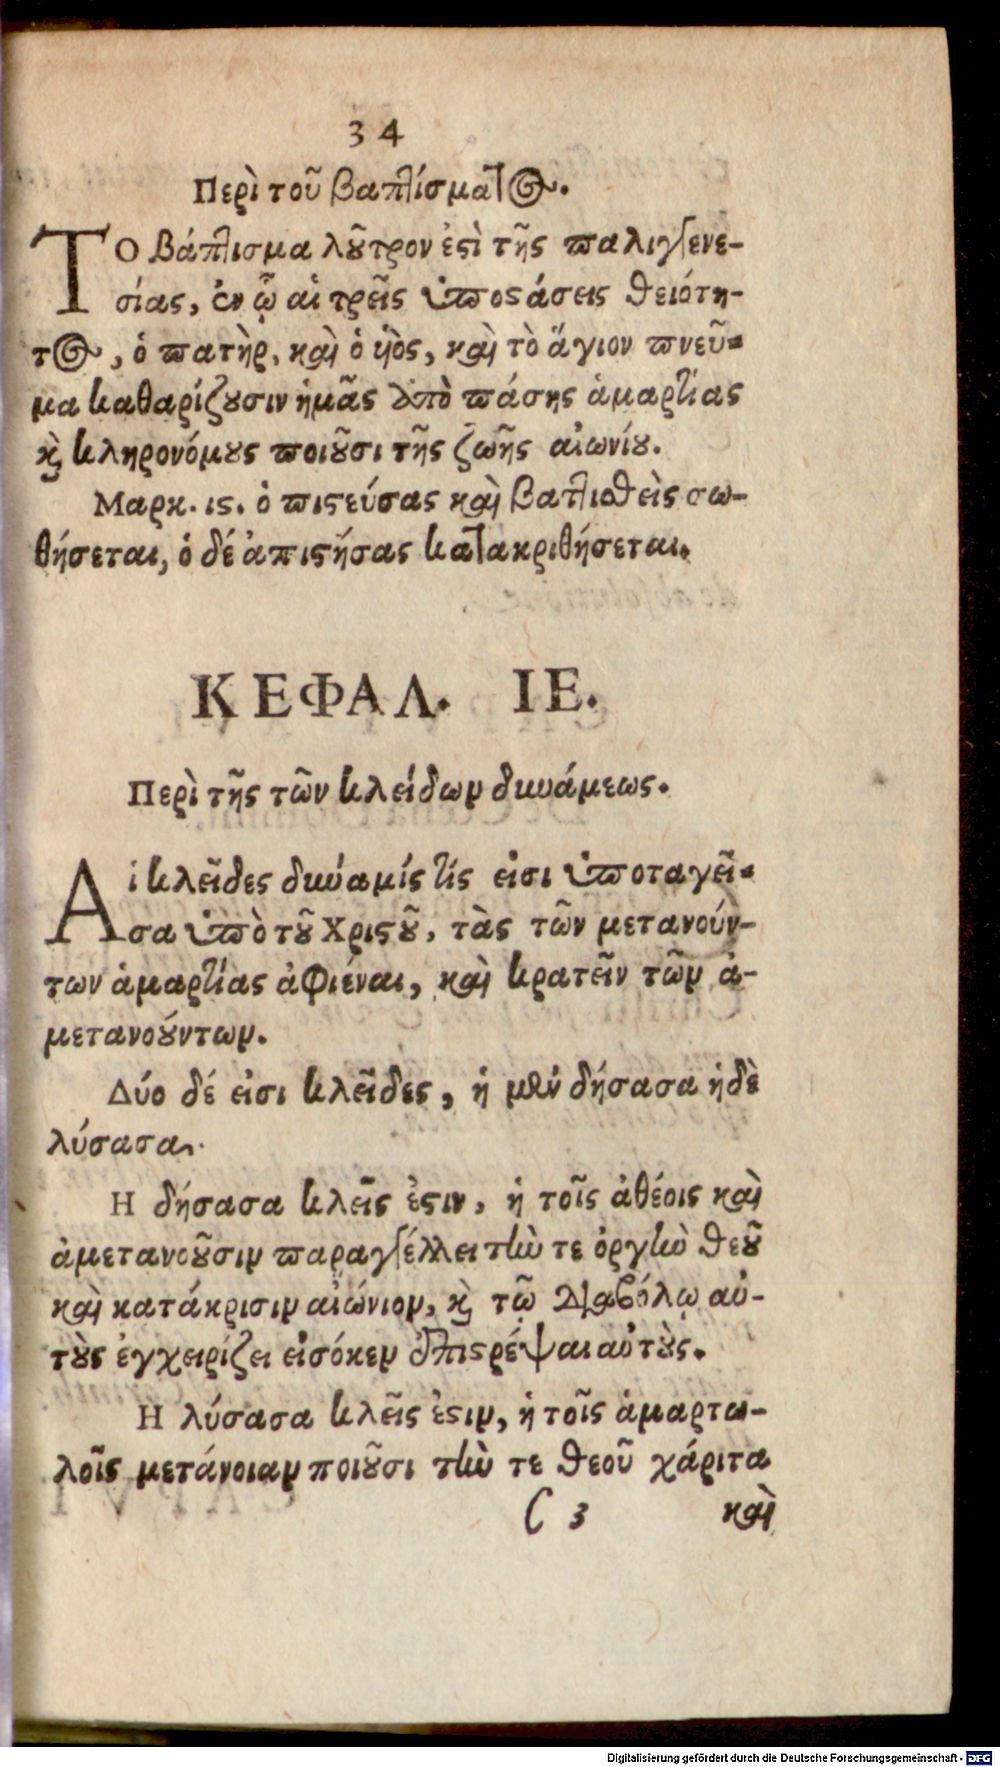 34
Περὶ τοῦ βαπτίσματος.
ΤΟ βάπτισμα λȣ͂τρον ἐϛὶ τῆς παλιγγενε-
σίας, ἐν ᾧ αἱ τρεῖς ὑποϛάσεις θειότη-
τος, ὁ πατὴρ, καὶ ὁ ὑὸς, καὶ τὸ ἅγιον πνεῦ-
μα καθαρίζȣσιν ἡμᾶς ἀπὸ πάσης ἁμαρτίας
κὶ κληρονόμȣς ποιȣ͂σι τῆς ζωῆς αἰωνίȣ.
Μαρκ. ιϛ. ὁ πιϛεύσας καὶ βαπτιοθεὶς σω-
θήσεται, ὁ δέ ἀπιϛήσας κατακριθήσεται.
ΚΕΦΑΛ. ΙΕ.
Περὶ τῆς τῶν κλείδων δυνάμεως.
Αἱ κλεῖδες δυύαμίς τίς εἰσι ὑποταγεῖ-
σα ὑπὸ τȣ͂ Χριϛȣ͂, τὰς τῶν μετανούν-
των ἁμαρτίας ἀφιέναι, καὶ κρατεῖν τῶν ἀ-
μετανοȣ́ντων.
Δύο δέ εἰσι κλεῖδες, ἡ μὲν δήσασα ἡδὲ
λύσασα.
Η δήσασα κλεῖς ἐϛιν, ἡ τοῖς ἀθέοις καὶ
ἀμετανοȣ͂σιν παραγγέλλει τὴν τε ὀργὴν θεȣ͂
καὶ κατάκρισιν αἰώνιον, κὶ τῷ Διαβόλῳ αὐ-
τȣ̀ς ἐγχειρίζει εἰσόκεν ἐπιϛρέψαι αὐτȣ̀ς.
Η λύσασα κλεῖς ἐϛιν, ἡ τοῖς ἁμαρτω-
λοῖς μετάνοιαν ποιȣ͂σι τὴν τε θεοῦ χάριτα
C 3 καὶ
Digitalisierung gefördert durch die Deutsche Forschungsgemeinschaft - DFG